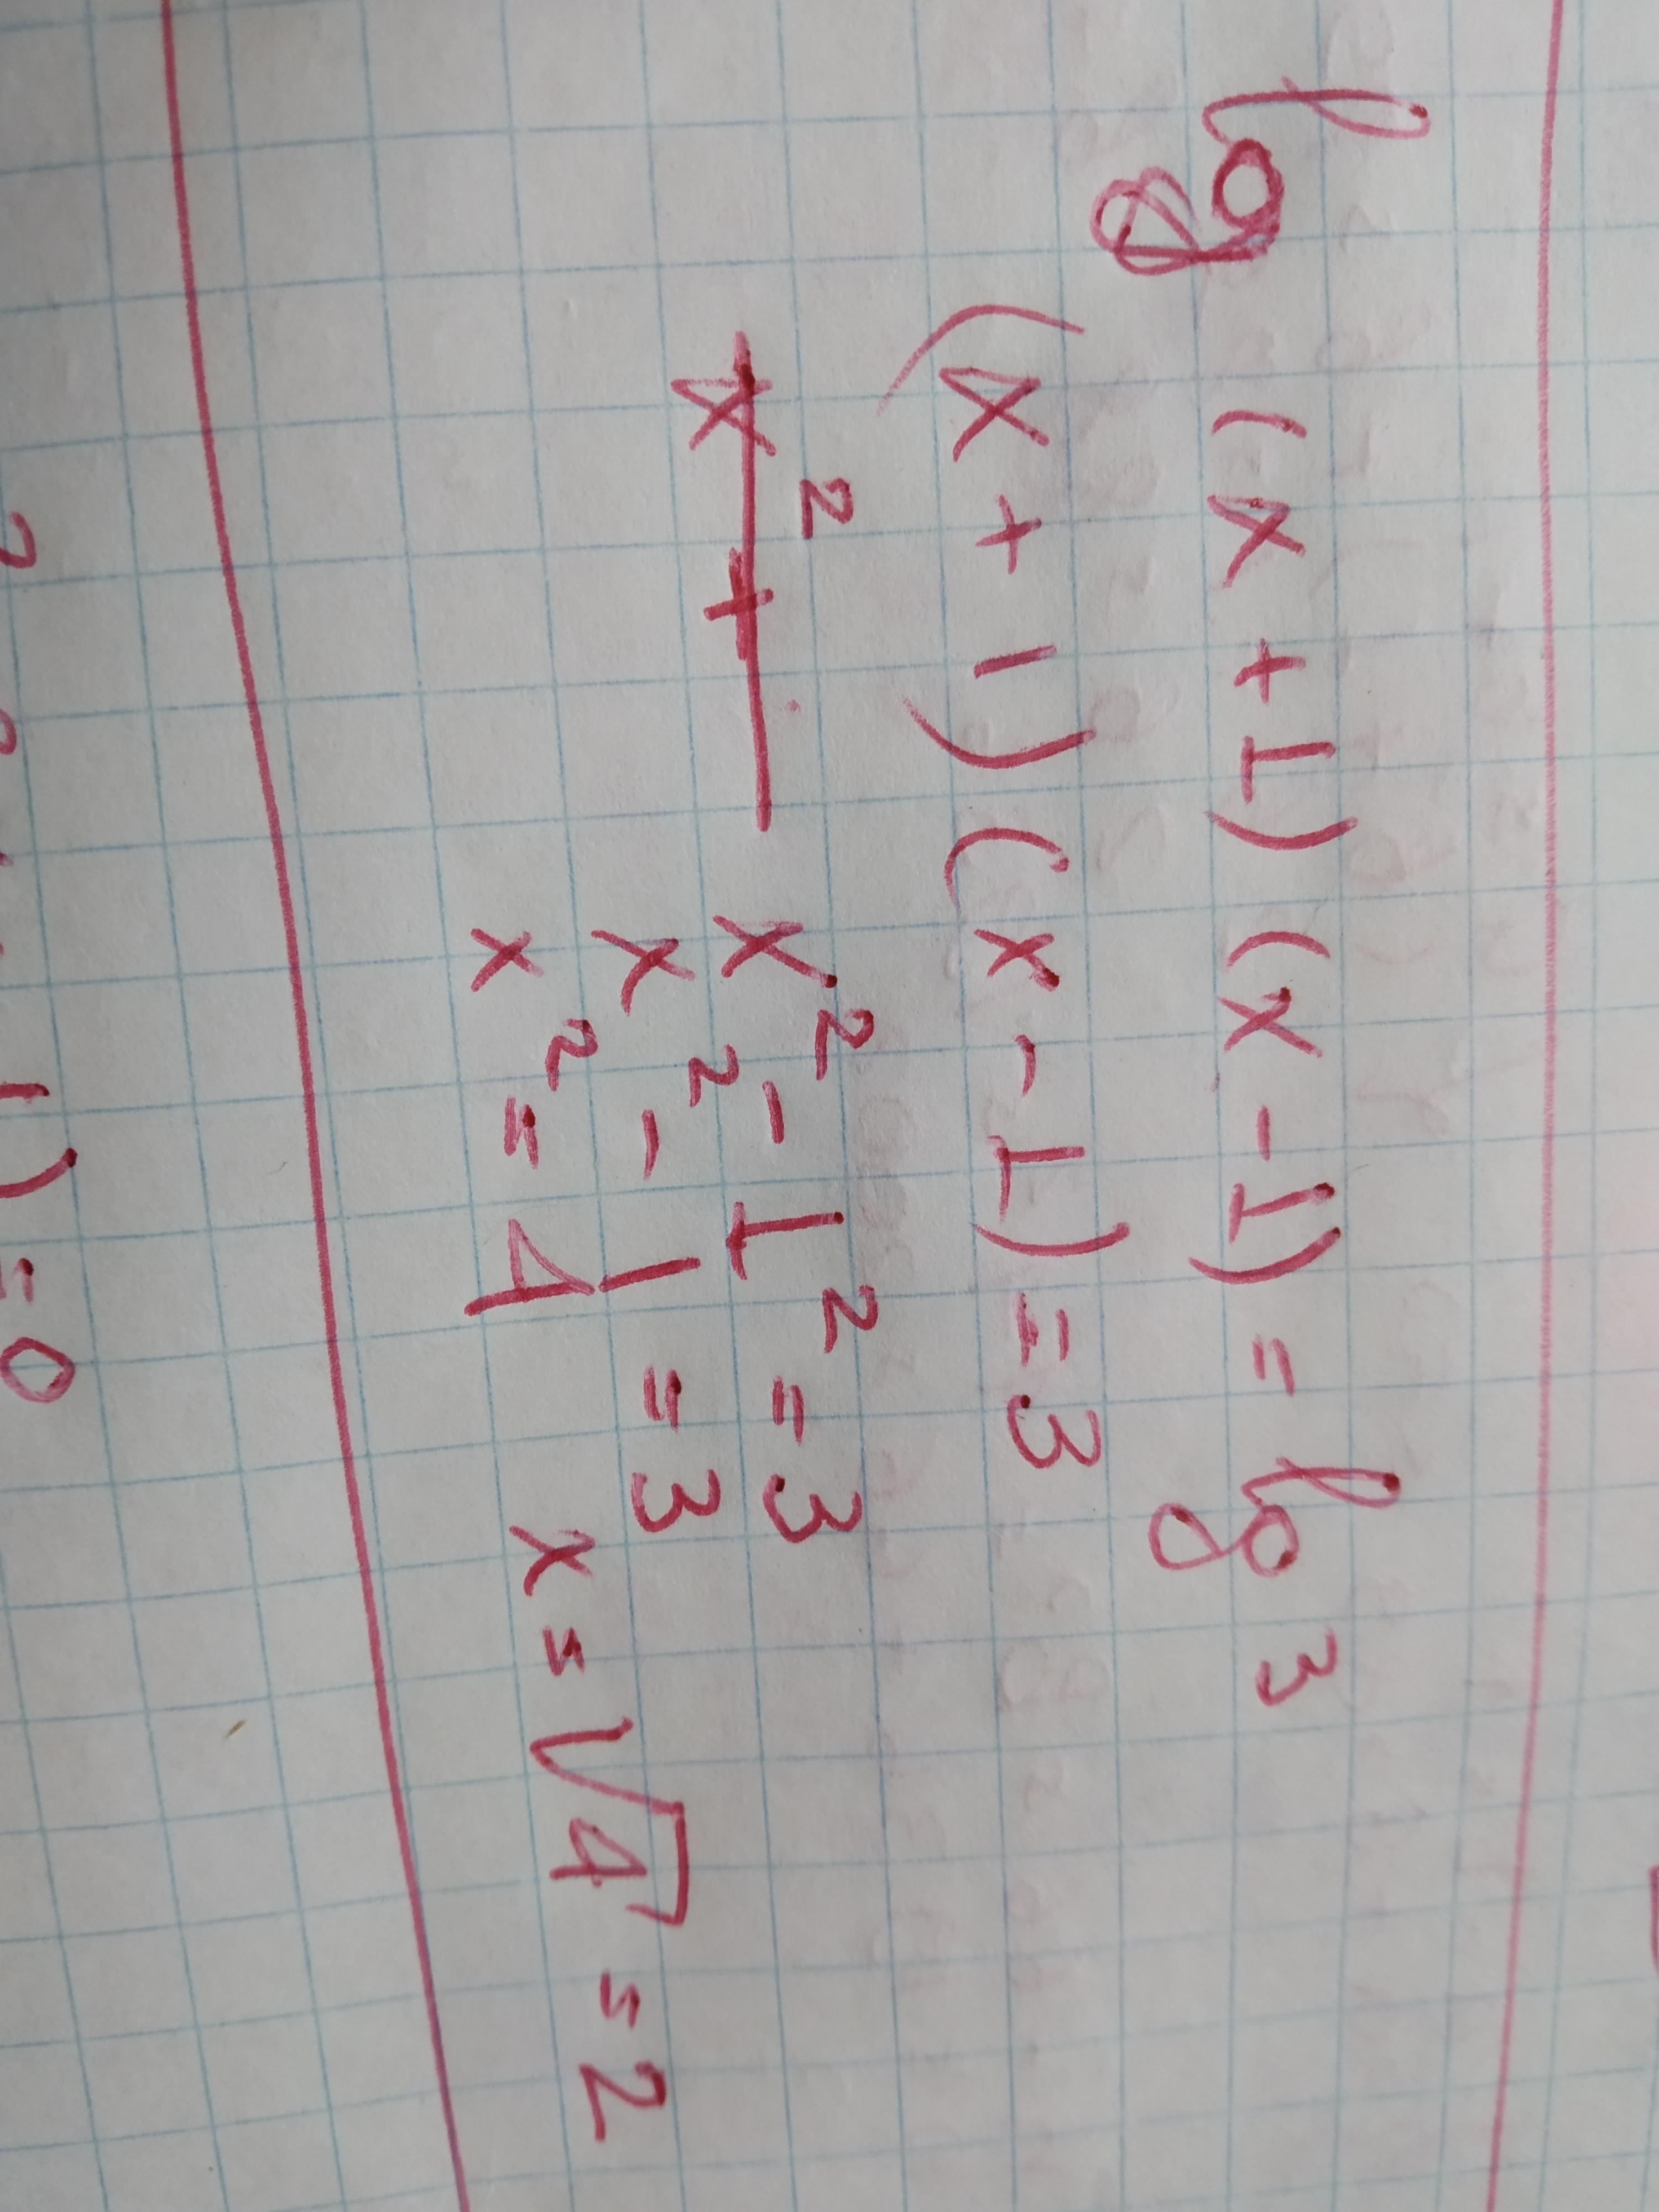 log (x+1)(x-1) = log 3
(x+1)(x-1) = 3
x² +
x² - 1² = 3
x² - 1 = 3
x² = 4 x = √4 = 2
1) = 0